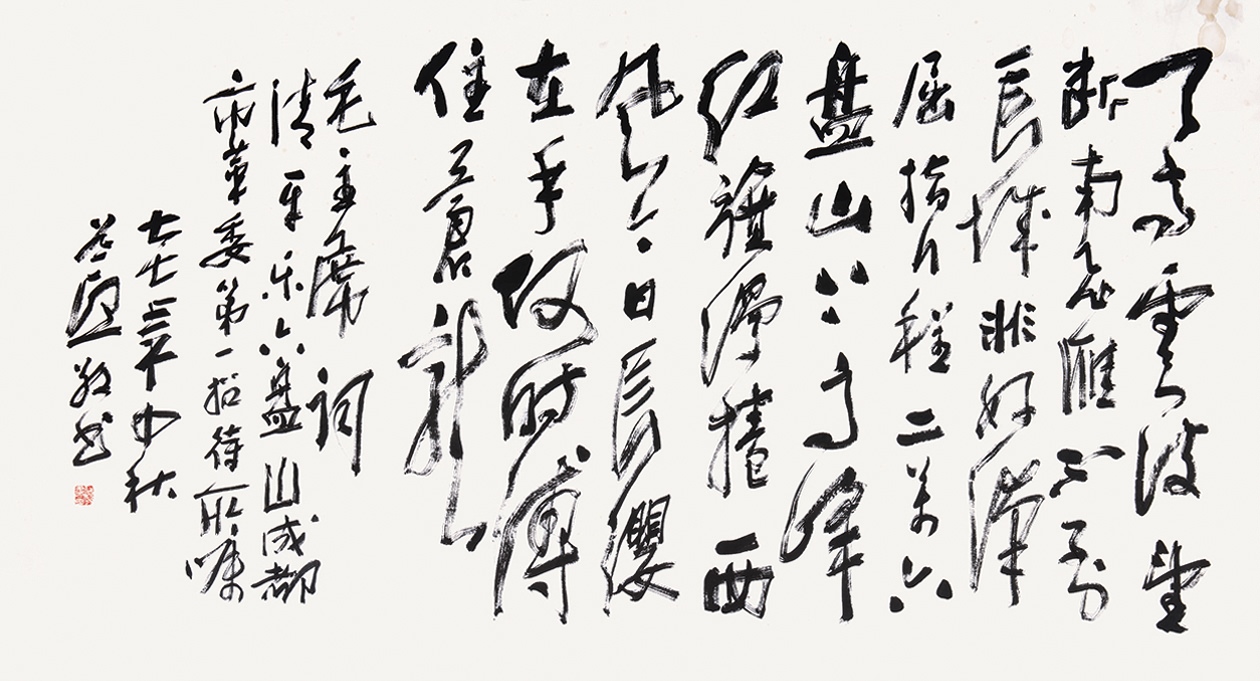 天高雲淡望
断南飞雁不到
长城非好漢
屈指行程二万六
盘山上高峰
红旗漫捲西
风今日长缨
在手何时缚
住苍龙
毛主席词
清平乐六盘山成都
市革委第一招待所嘱
七七年中秋
敬书